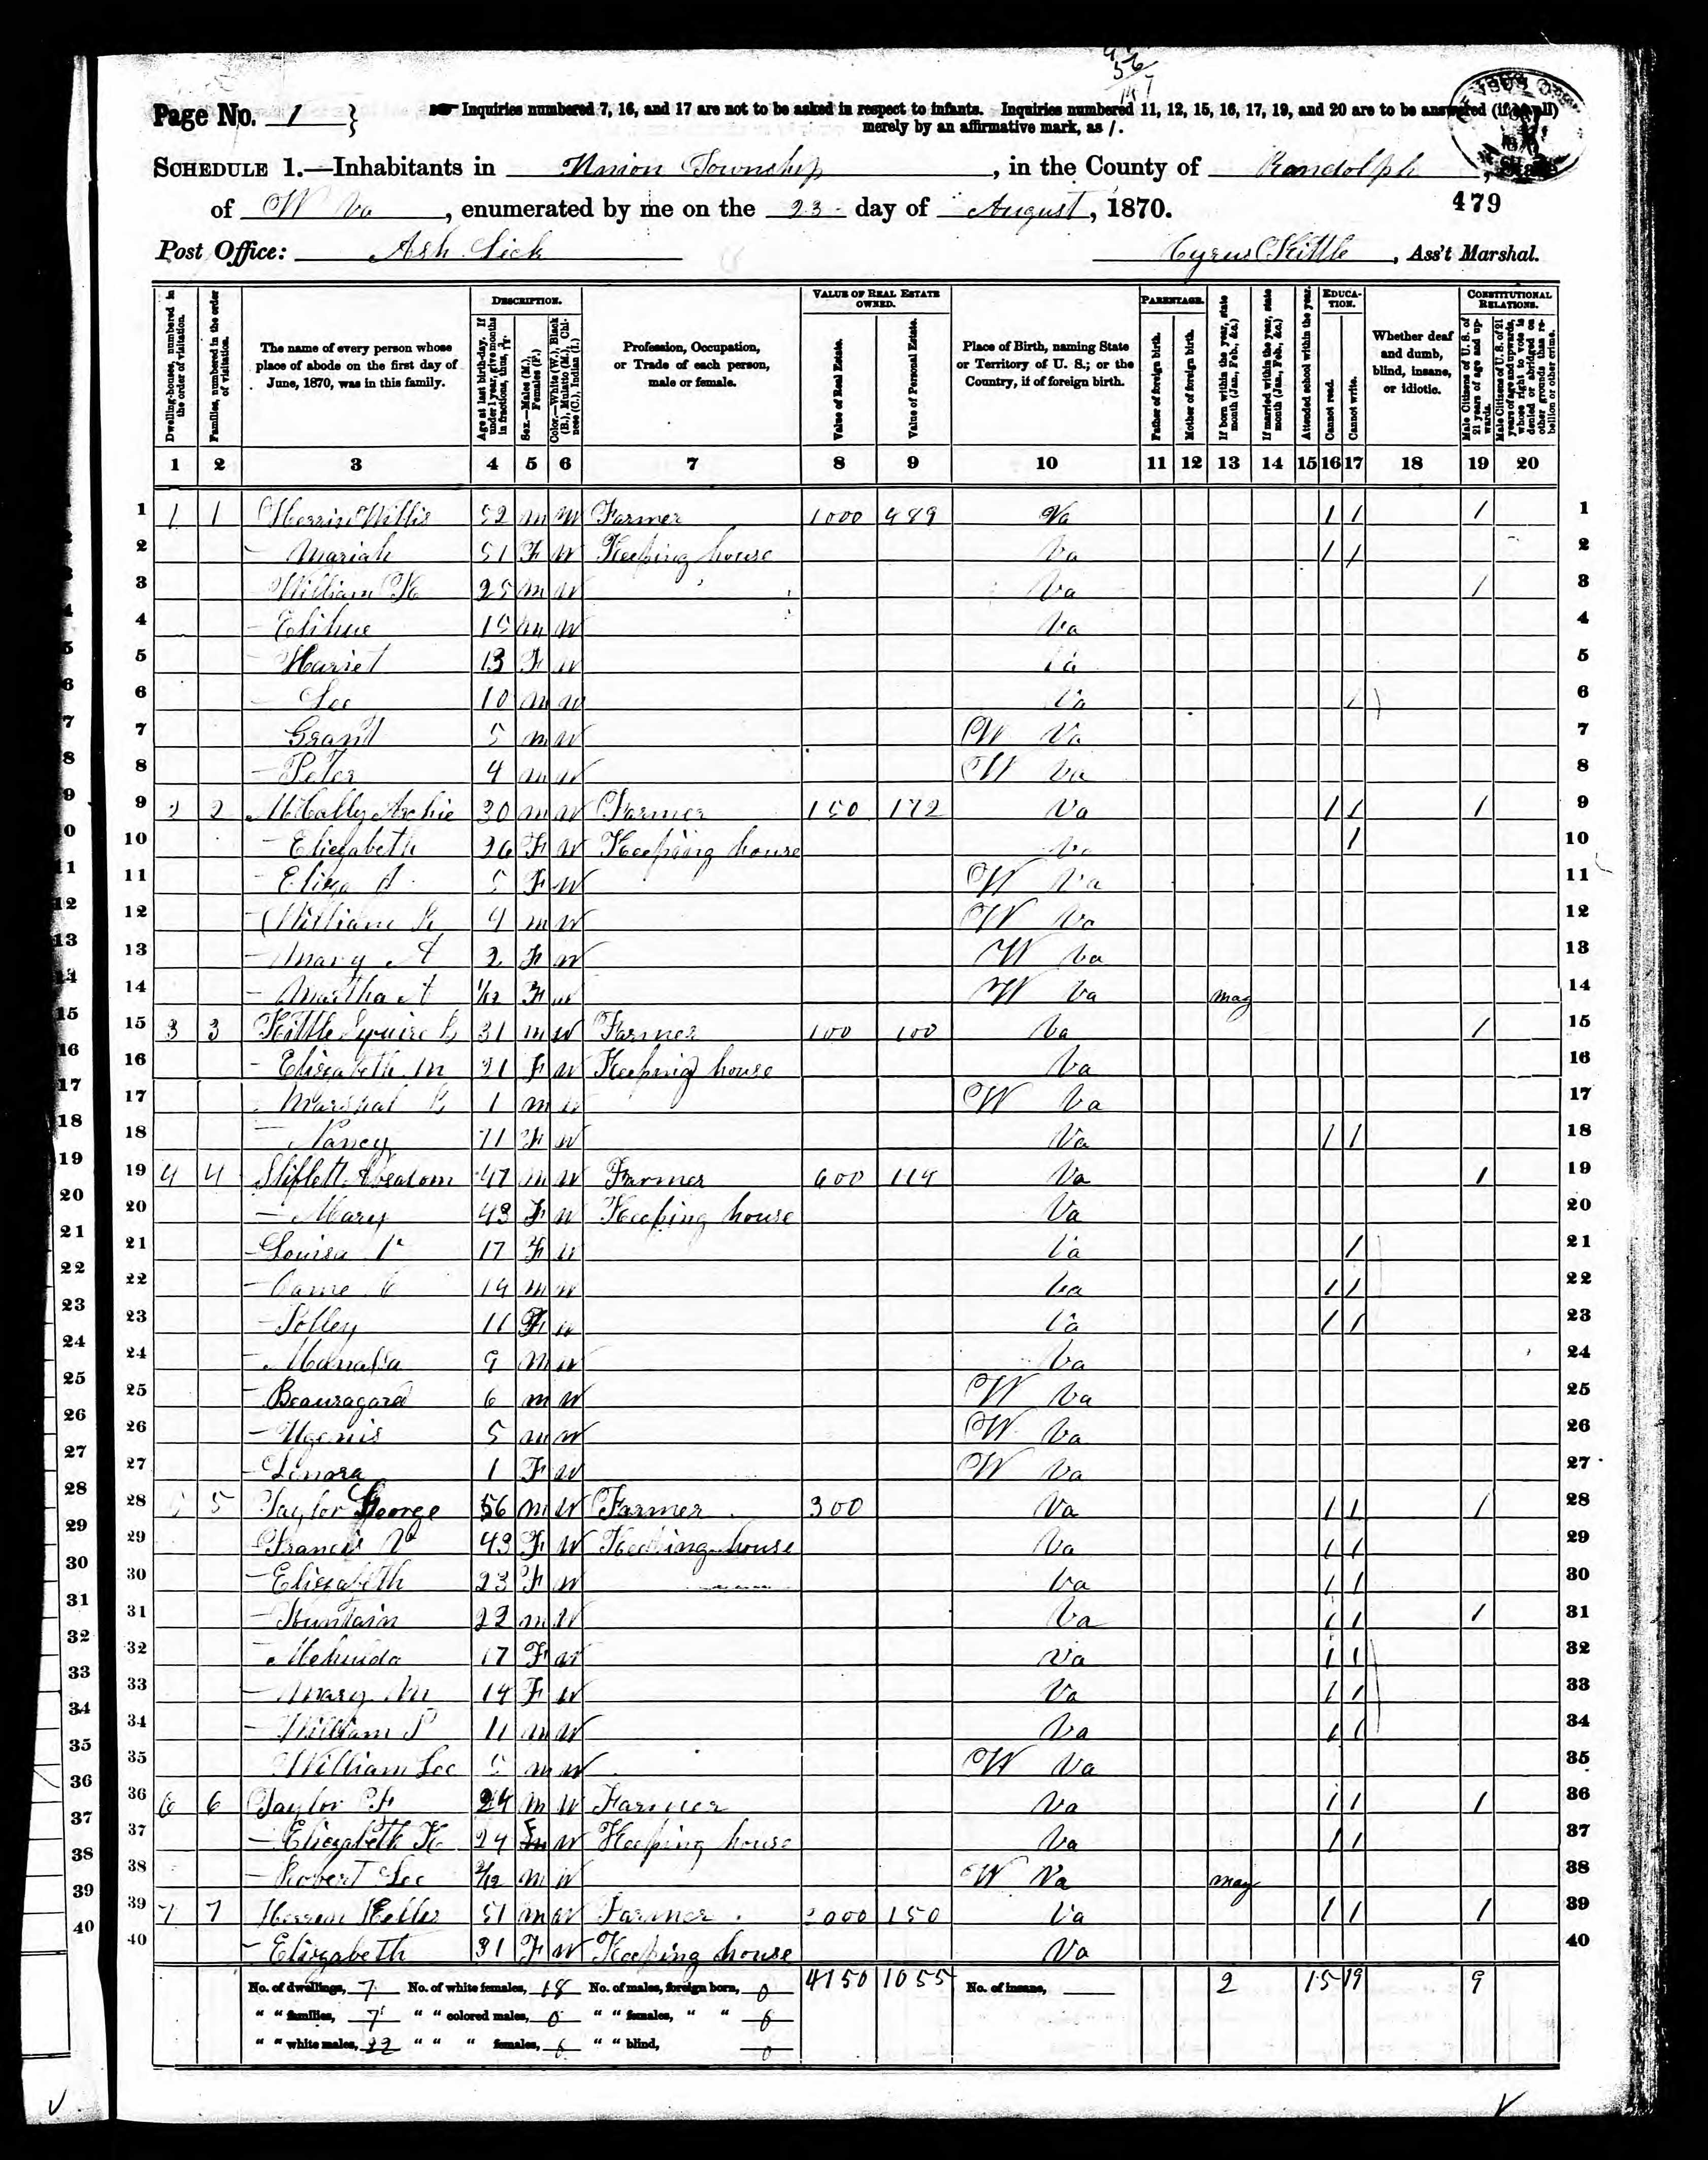 Page No. 1
Inquiries numbered 7, 16, and 17 are not to be asked in respect to infants. Inquiries numbered 11, 12, 15, 16, 17, 19, and 20 are to be answered (if at all)
merely by an affirmative mark, as /.
SCHEDULE 1.—Inhabitants in Union Township, in the County of Randolph, State
of W Va, enumerated by me on the 23 day of August, 1870.
479
Post Office: Ash Lick
Cyrus Kittle, Ass't Marshal.
Dwelling-houses, numbered in the order of visitation.
Families, numbered in the order of visitation.
The name of every person whose place of abode on the first day of June, 1870, was in this family.
DESCRIPTION.
Age at last birth-day. If under 1 year, give months in fractions, thus, 3/12.
Sex.—Males (M.), Females (F.)
Color.—White (W.), Black (B.), Mulatto (M.), Chinese (C.), Indian (I.)
Profession, Occupation, or Trade of each person, male or female.
VALUE OF REAL ESTATE OWNED.
Value of Real Estate.
Value of Personal Estate.
Place of Birth, naming State or Territory of U. S.; or the Country, if of foreign birth.
PARENTAGE.
Father of foreign birth.
Mother of foreign birth.
If born within the year, state month (Jan. Feb., &c.)
If married within the year, state month (Jan. Feb., &c.)
EDUCATION.
Attended school within the year.
Cannot read.
Cannot write.
Whether deaf and dumb, blind, insane, or idiotic.
CONSTITUTIONAL RELATIONS.
Male Citizens of U. S. of 21 years of age and upwards.
Male Citizens of U. S. of 21 years of age and upwards, whose right to vote is denied or abridged on other grounds than rebellion or other crime.
1 2 3 4 5 6 7 8 9 10 11 12 13 14 15 16 17 18 19 20
1 1 1 Herrin Willis 52 m W Farmer 1000 489 Va / / / 1
2 — Mariah 51 F W Keeping house Va / / 2
3 William 25 m W Va / 3
4 — Elihue 15 m W Va 4
5 — Harriet 13 F W Va 5
6 — Lee 10 m W Va / 6
7 Grant 5 m W W Va 7
8 — Peter 4 m W W Va 8
9 2 2 McCally Archie 30 m W Farmer 150 172 Va / / / 9
10 — Eliezabeth 26 F W Keeping house Va / 10
11 — Eliza 5 F W W Va 11
12 — William 4 m W W Va 12
13 — Mary A 2 F W W Va 13
14 — Martha 1/12 F W W Va May 14
15 3 3 Kittle Squire B 31 m W Farmer 100 100 Va / 15
16 — Eliezabeth M 21 F W Keeping house Va 16
17 Marshal B 1 m W W Va 17
18 — Nancy 71 F W Va / / 18
19 4 4 Shiflett Absalom 47 m W Farmer 600 114 Va / 19
20 — Mary 43 F W Keeping house Va 20
21 — Louisa 17 F W Va / 21
22 — 14 m W Va / / 22
23 — Polley 11 F W Va / / 23
24 — Manassa 9 m W Va 24
25 — Beauragard 6 m W W Va 25
26 — Ugenis 5 m W W Va 26
27 — Lenora 1 F W W Va 27
28 5 Taylor George 56 m W Farmer 300 Va / / / 28
29 — Francis 43 F W Keeping house Va / / 29
30 — Eliezabeth 23 F W Va / / 30
31 — Fountain 22 m W Va / / / 31
32 — Melinda 17 F W Va / / 32
33 — Mary M 14 F W Va / / 33
34 — William P 11 m W Va / / 34
35 William Lee 5 m W W Va 35
36 6 6 Taylor 24 m W Farmer Va / / / 36
37 — Eliezabeth 24 F W Keeping house Va / / 37
38 — Robert Lee 2/12 m W W Va May 38
39 7 7 Herren 51 m W Farmer 2000 150 Va / / / 39
40 — Eliezabeth 31 F W Keeping house Va 40
No. of dwellings, 7 No. of white females, 18 No. of males, foreign born, 0 4150 1055 No. of insane, 2 15 19 9
" " families, 7 " " colored males, 0 " " females, " " 0
" " white males, 22 " " " females, 0 " " blind, 0